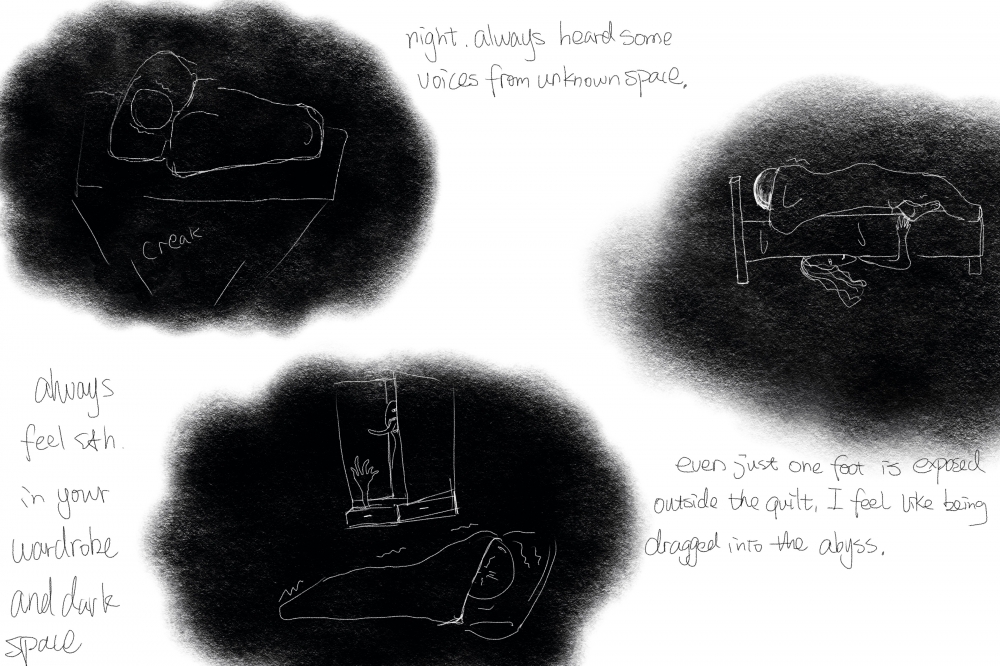 night. always heard some
voices from unknown space.
creak
always
feel sth.
in your
wardrobe
and dark
space
even just one foot is exposed
outside the quilt, I feel like being
dragged into the abyss.